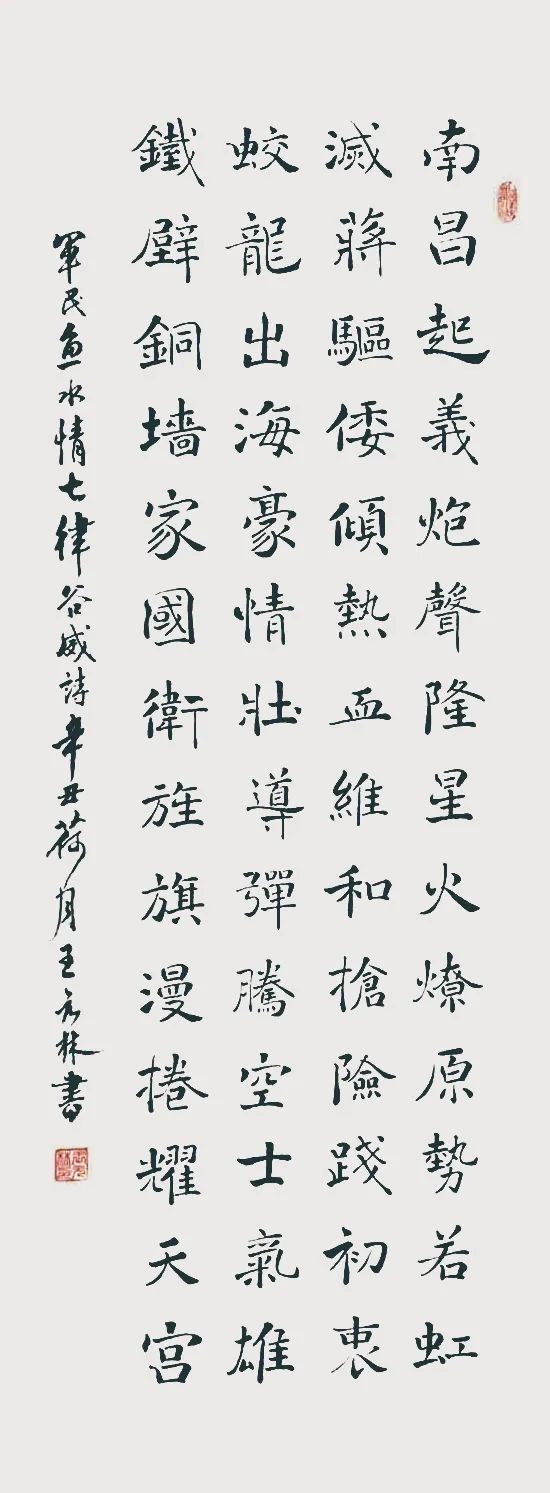 南昌起義炮聲隆星火燎原勢若虹
滅蔣驅倭傾熱血維和搶險踐初衷
蛟龍出海豪情壯導彈騰空士氣雄
鐵壁銅墻家國衛旌旗漫捲耀天宮
軍民魚水情七律谷威詩辛丑荷月王元林書